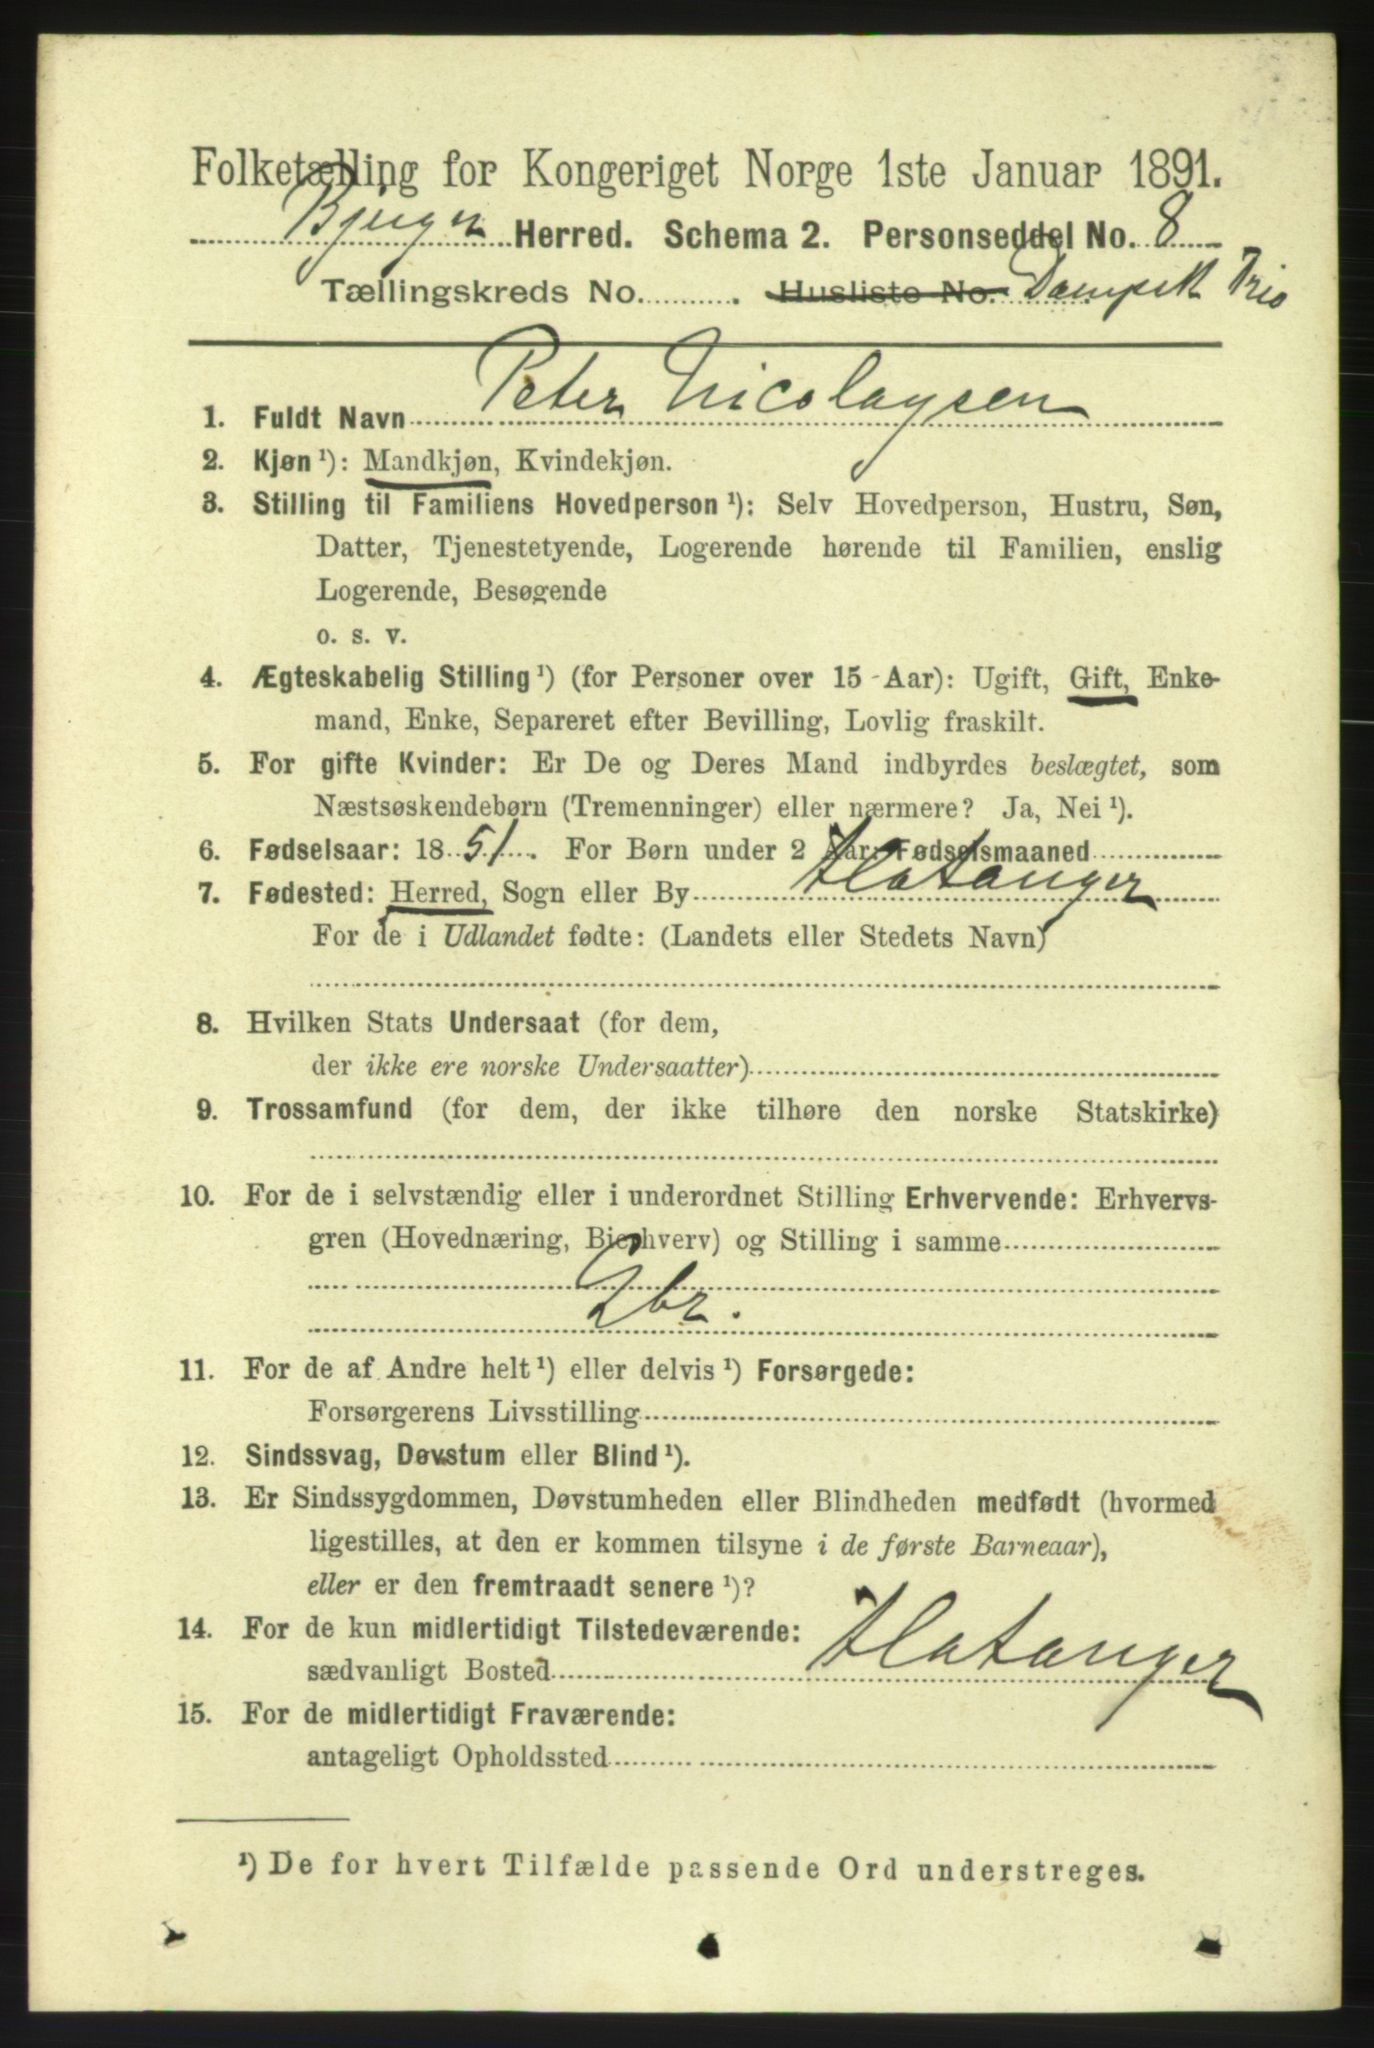 Folketælling for Kongeriget Norge 1ste Januar 1891.
Bjugn Herred. Schema 2. Personseddel No. 8
Tællingskreds No. Husliste No. Dampsk Trio
1. Fuldt Navn Peter Nicolaysen
2. Kjøn ¹): Mandkjøn, Kvindekjøn.
3. Stilling til Familiens Hovedperson ¹): Selv Hovedperson, Hustru, Søn,
Datter, Tjenestetyende, Logerende hørende til Familien, enslig
Logerende, Besøgende
o. s. v.
4. Ægteskabelig Stilling ¹) (for Personer over 15 Aar): Ugift, Gift, Enke-
mand, Enke, Separeret efter Bevilling, Lovlig fraskilt.
5. For gifte Kvinder: Er De og Deres Mand indbyrdes beslægtet, som
Næstsøskendebørn (Tremenninger) eller nærmere? Ja, Nei ¹).
6. Fødselsaar: 1851. For Børn under 2 Aar: Fødselsmaaned
7. Fødested: Herred, Sogn eller By Flatanger
For de i Udlandet fødte: (Landets eller Stedets Navn)
8. Hvilken Stats Undersaat (for dem,
der ikke ere norske Undersaatter)
9. Trossamfund (for dem, der ikke tilhøre den norske Statskirke)
10. For de i selvstændig eller i underordnet Stilling Erhvervende: Erhvervs-
gren (Hovednæring, Bierhverv) og Stilling i samme
Gbr.
11. For de af Andre helt ¹) eller delvis ¹) Forsørgede:
Forsørgerens Livsstilling
12. Sindssvag, Døvstum eller Blind ¹).
13. Er Sindssygdommen, Døvstumheden eller Blindheden medfødt (hvormed
ligestilles, at den er kommen tilsyne i de første Barneaar),
eller er den fremtraadt senere ¹)?
14. For de kun midlertidigt Tilstedeværende:
sædvanligt Bosted Flatanger
15. For de midlertidigt Fraværende:
antageligt Opholdssted
¹) De for hvert Tilfælde passende Ord understreges.